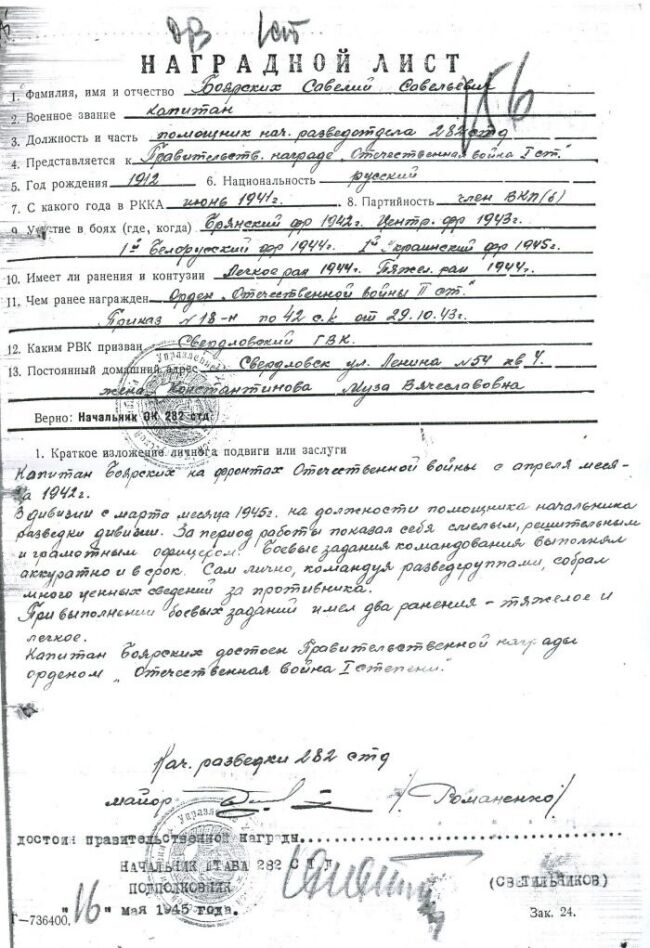 ОВ Iст
НАГРАДНОЙ ЛИСТ
1. Фамилия, имя и отчество Боярских Савелий Савельевич
2. Военное звание капитан
3. Должность и часть помощник нач. разведотдела 282 стд
4. Представляется к Правительств. награде "Отечественная война I ст."
5. Год рождения 1912 6. Национальность русский
7. С какого года в РККА июнь 1941г. 8. Партийность член ВКП(б)
9. Участие в боях (где, когда) Брянский фр 1942г. Центр. фр 1943г.
1й Белорусский фр 1944г. 1й Украинский фр 1945г.
10. Имеет ли ранения и контузии Легкое ран 1944г. Тяжел. ран 1944г.
11. Чем ранее награжден Орден "Отечественной войны II ст."
Приказ №18-н по 42 с.к. от 29.10.43г.
12. Каким РВК призван Свердловский ГВК
13. Постоянный домашний адрес Свердловск ул. Ленина №54 кв 4.
жена Константинова Муза Вячеславовна
Верно: Начальник ОК 282 стд.
1. Краткое изложение личного подвига или заслуги
Капитан Боярских на фронтах Отечественной войны с апреля меся-
ца 1942г.
В дивизии с марта месяца 1945г. на должности помощника начальника
разведки дивизии. За период работы показал себя смелым, решительным
и грамотным офицером. Боевые задания командования выполнял
аккуратно и в срок. Сам лично, командуя разведгруппами, собрал
много ценных сведений за противника.
При выполнении боевых заданий имел два ранения - тяжелое и
легкое.
Капитан Боярских достоен Правительственной награды
орденом "Отечественная война I степени."
Нач. разведки 282 стд
майор /Романенко/
достоин правительственной награды
НАЧАЛЬНИК ШТАБА 282 СТД
ПОДПОЛКОВНИК (СВЕТИЛЬНИКОВ)
"16" мая 1945 года.
Г-736400. Зак. 24.